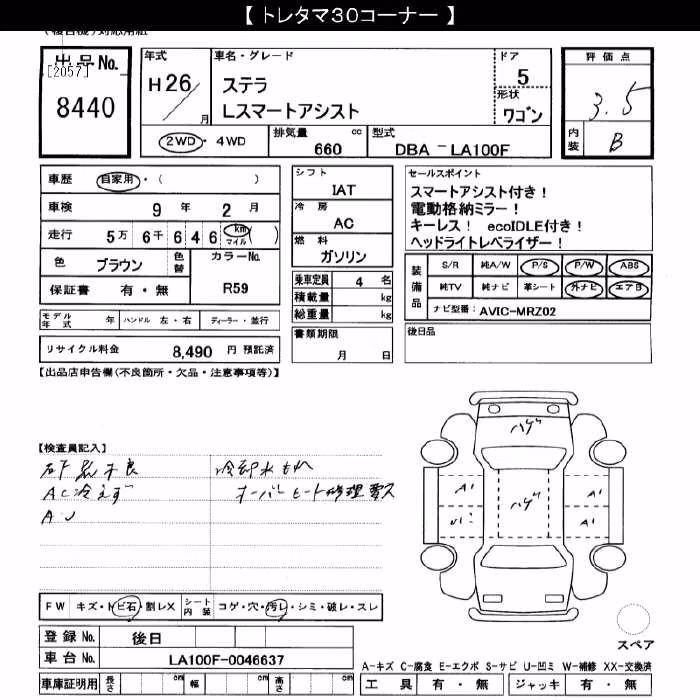 【 トレタマ30コーナー 】
(複合機)対応用紙
出品No.
[2057]
8440
年式
H 26 / 月
車名・グレード
ステラ
Lスマートアシスト
ドア
5
形状
ワゴン
評価点
3.5
内装 B
2WD ・ 4WD
排気量 cc
660
型式
DBA － LA100F
車歴 自家用・( )
車検 9 年 2 月
走行 5万 6千 6 4 6 (km マイル)
色 ブラウン 色替
カラーNo.
R59
保証書 有・無
モデル年式 年 ハンドル 左・右 ディーラー・並行
リサイクル料金 8,490 円 預託済
シフト
IAT
冷房
AC
燃料
ガソリン
乗車定員 4 名
積載量 kg
総重量 kg
書類期限
月 日
セールスポイント
スマートアシスト付き！
電動格納ミラー！
キーレス！ ecoIDLE付き！
ヘッドライトレベライザー！
装備品
S/R 純A/W P/S P/W ABS
純TV 純ナビ 革シート 外ナビ エアB
ナビ型番： AVIC-MRZ02
後日品
【出品店申告欄(不良箇所・欠品・注意事項等)】
【検査員記入】
不良 冷却水もれ
AC冷えず オーバーヒート修理要ス
Aいハゲ
ハゲ
A1 A1
A1
FW キズ・トビ石・割レX シート内装 コゲ・穴・汚レ・シミ・破レ・スレ
登録No. 後日
車台No. LA100F-0046637
車庫証明用 長さ cm 幅 cm 高さ cm
スペア
A-キズ C-腐食 E-エクボ S-サビ U-凹ミ W-補修 XX-交換済
工具 有・無 ジャッキ 有・無